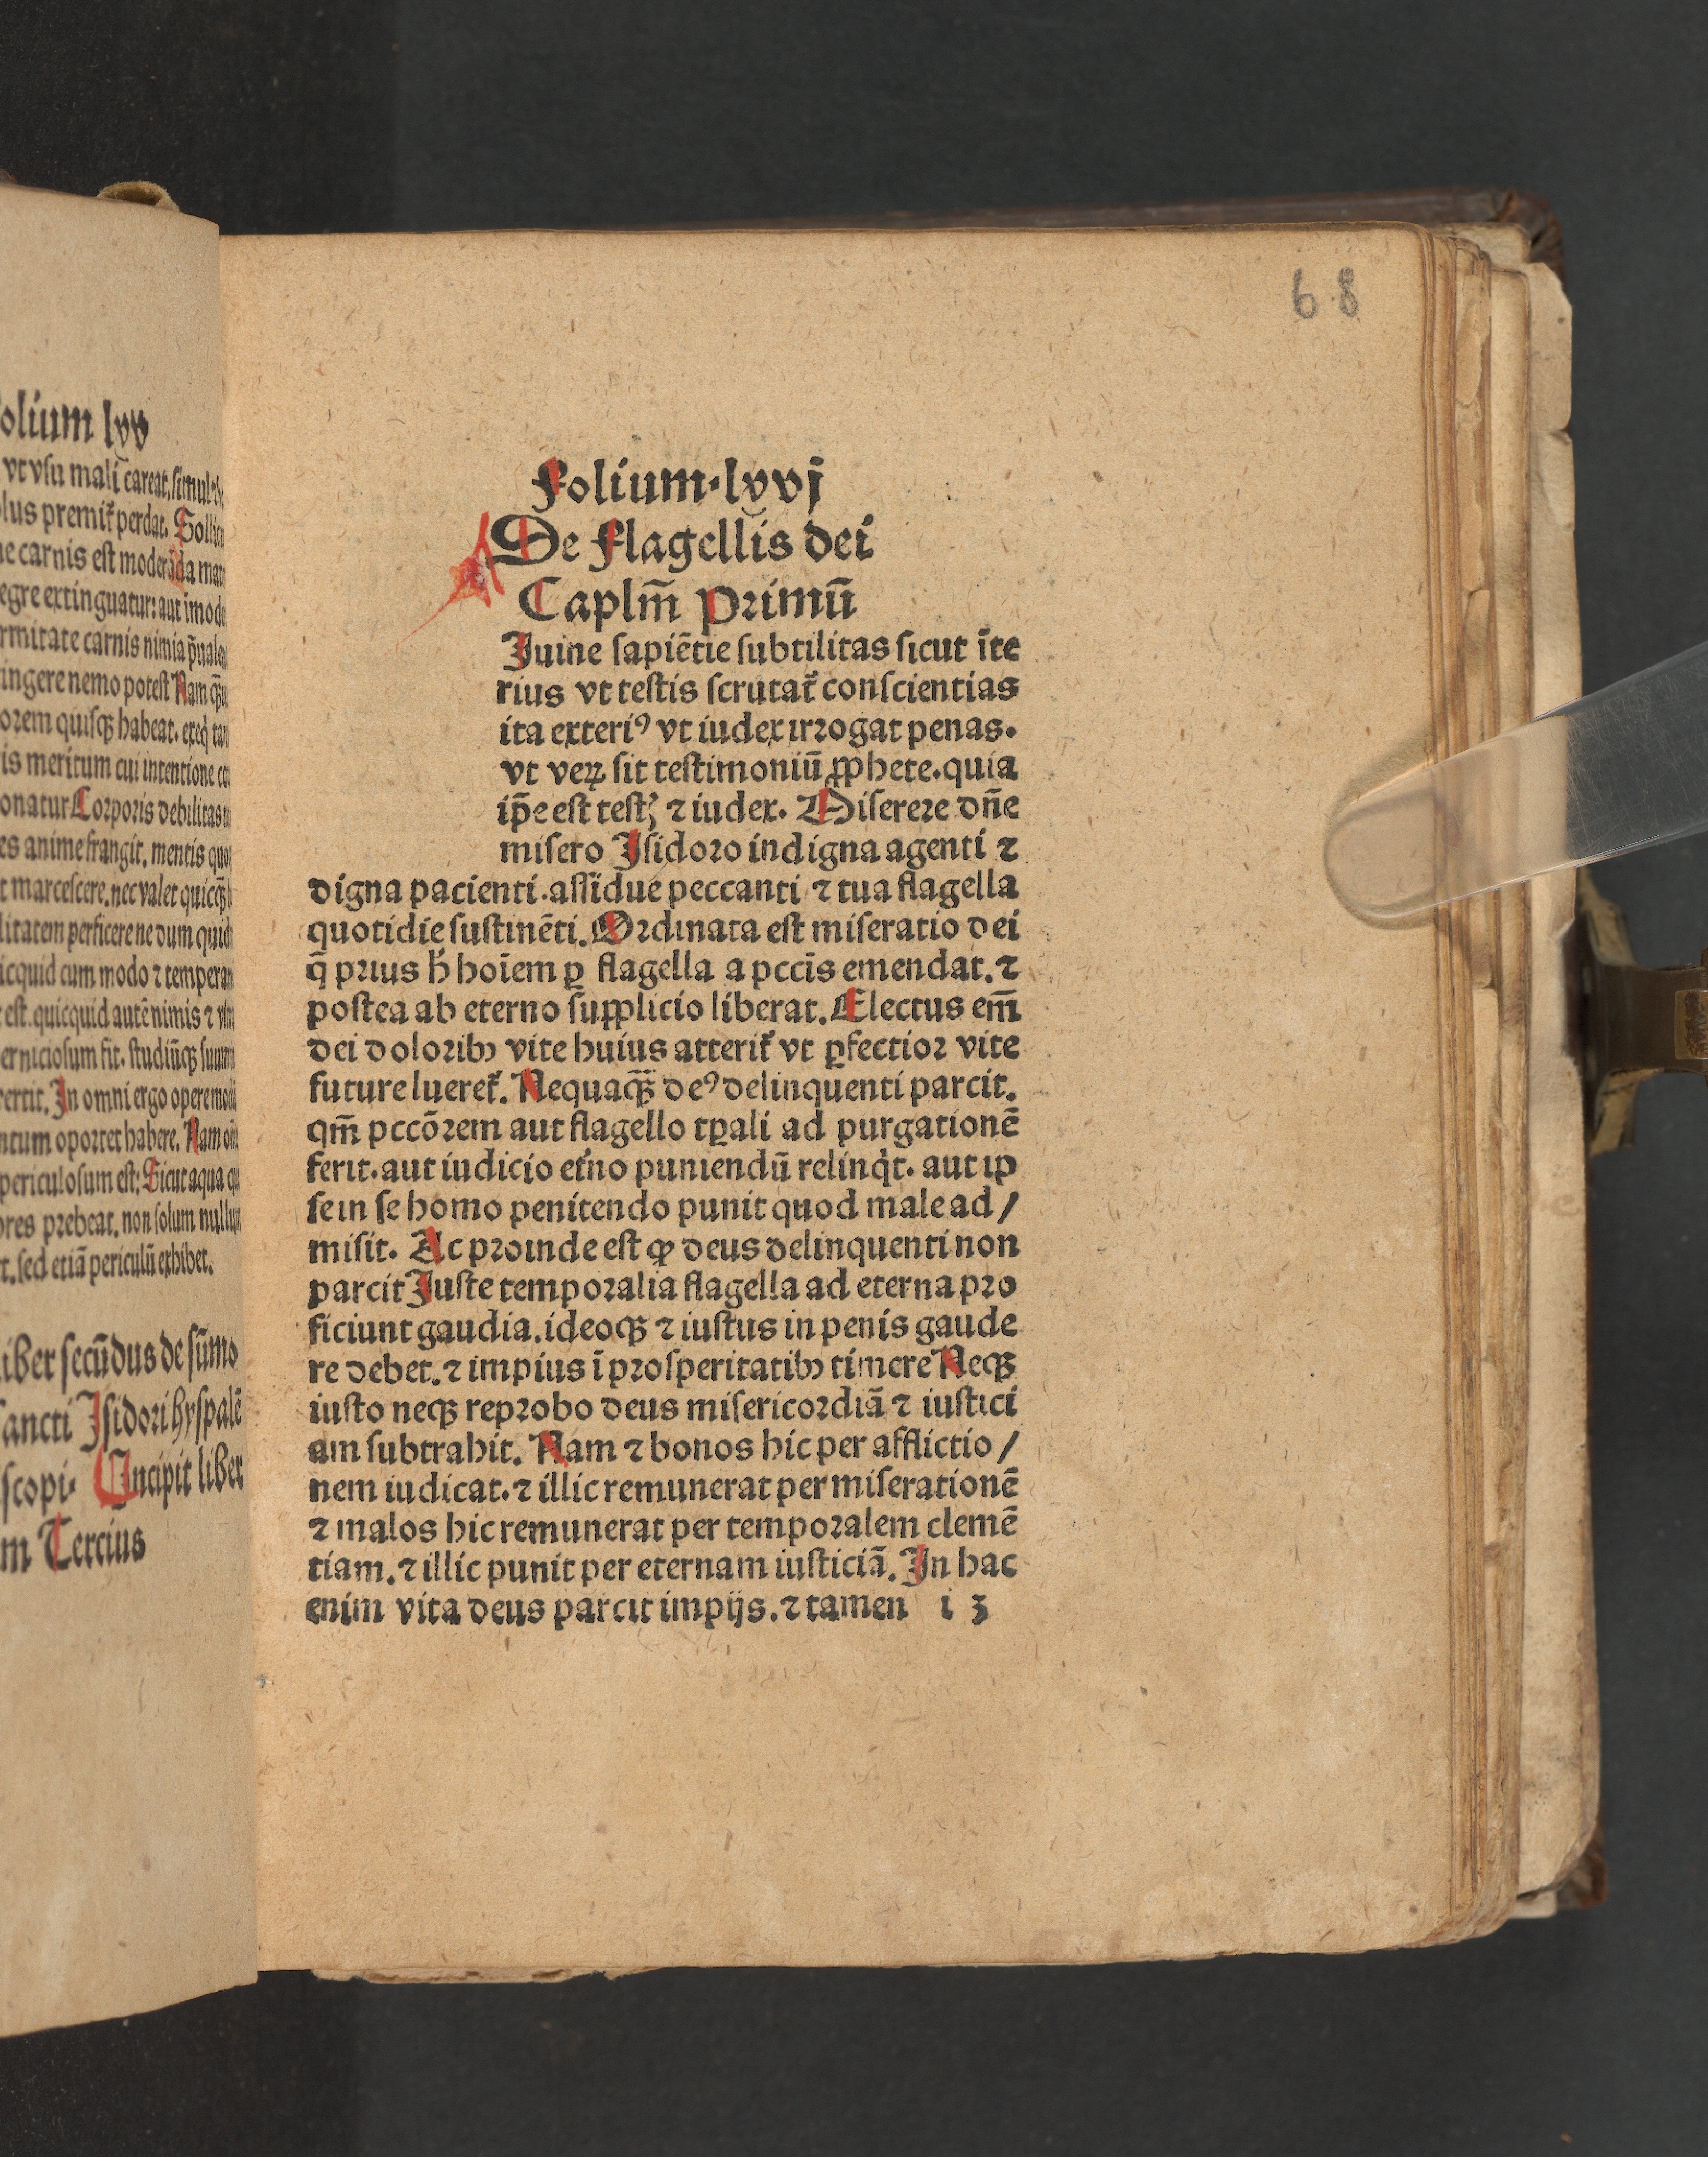 olium lxv
vt vsu mali careat. simul
lus premit᷑ perdat. Sollici
e carnis est moderāda ma
egre extinguatur: aut imode
rmitate carnis nimia p̄uale
ingere nemo potest Nam
orem quisqȝ habeat.
is meritum cui intentione
onatur Corporis debilitas
es anime frangit. mentis quo
t marcescere. nec valet
litatem perficere nedum quid
icquid cum modo ⁊ tempera
est. quicquid autē nimis ⁊
erniciosum fit. studiūqȝ suum
ertit. In omni ergo opere
ntum oportet habere. Nam
periculosum est: Sicut aqua
res prebeat. non solum
t. sed etiā periculū exhibet.
iber secūdus de sūmo
ancti Isidori hyspalē
scopi. Incipit liber
m Tercius
68
Folium. lxvj
De flagellis dei
Caplm̄ Primū
Iuine sapiētie subtilitas sicut īte
rius vt testis scrutat᷑ conscientias
ita exteriꝰ vt iudex irrogat penas.
vt veꝝ sit testimoniū ꝓphete. quia
ip̄e est testꝭ ⁊ iudex. Miserere dn̄e
misero Isidoro indigna agenti ⁊
digna pacienti. assidue peccanti ⁊ tua flagella
quotidie sustinēti. Ordinata est miseratio dei
q̄ prius h̄ hoīem ꝑ flagella a pccīs emendat. ⁊
postea ab eterno supplicio liberat. Electus em̄
dei doloribꝫ vite huius atterit᷑ vt ꝑfectior vite
future lueret᷑. Nequaqȝ̄ deꝰ delinquenti parcit.
qm̄ pccōrem aut flagello tꝑali ad purgationē
ferit. aut iudicio et᷑no puniendū relinq̇t. aut ip
se in se homo penitendo punit quod male ad/
misit. Ac proinde est ꝙ deus delinquenti non
parcit Iuste temporalia flagella ad eterna pro
ficiunt gaudia. ideoqȝ ⁊ iustus in penis gaude
re debet. ⁊ impius ī prosperitatibꝫ timere Neqȝ
iusto neqȝ reprobo deus misericordiā ⁊ iustici
am subtrahit. Nam ⁊ bonos hic per afflictio/
nem iudicat. ⁊ illic remunerat per miserationē
⁊ malos hic remunerat per temporalem clemē
tiam. ⁊ illic punit per eternam iusticiā. In hac
enim vita deus parcit impijs. ⁊ tamen i 3